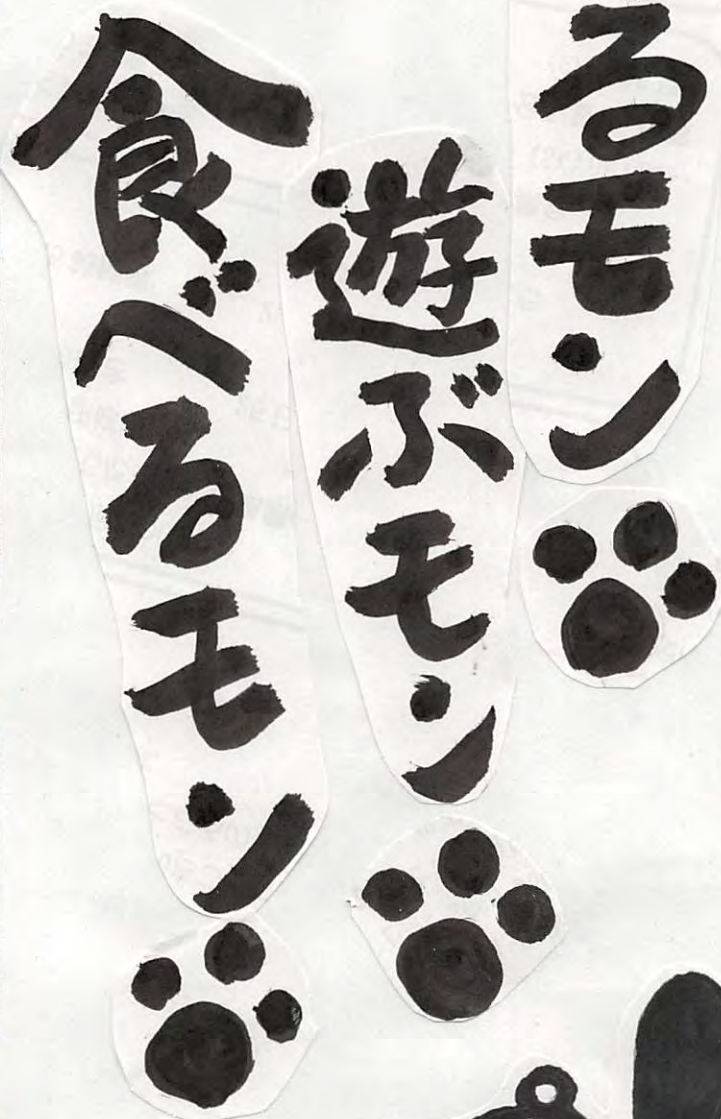 るモン
遊ぶモン
食べるモン